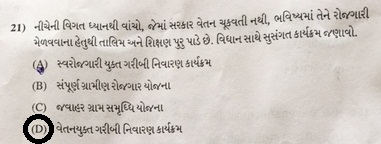 21) નીચેની વિગત ધ્યાનથી વાંચો, જેમાં સરકાર વેતન ચૂકવતી નથી, ભવિષ્યમાં તેને રોજગારી
મેળવવાના હેતુથી તાલિમ અને શિક્ષણ પુરુ પાડે છે. વિધાન સાથે સુસંગત કાર્યક્રમ જણાવો.
(A) સ્વરોજગારી યુક્ત ગરીબી નિવારણ કાર્યક્રમ
(B) સંપૂર્ણ ગ્રામીણ રોજગાર યોજના
(C) જવાહર ગ્રામ સમૃધ્ધિ યોજના
(D) વેતનયુક્ત ગરીબી નિવારણ કાર્યક્રમ